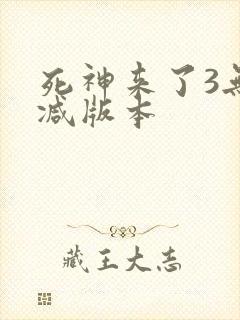 死神来了3無
减版本
藏王大志